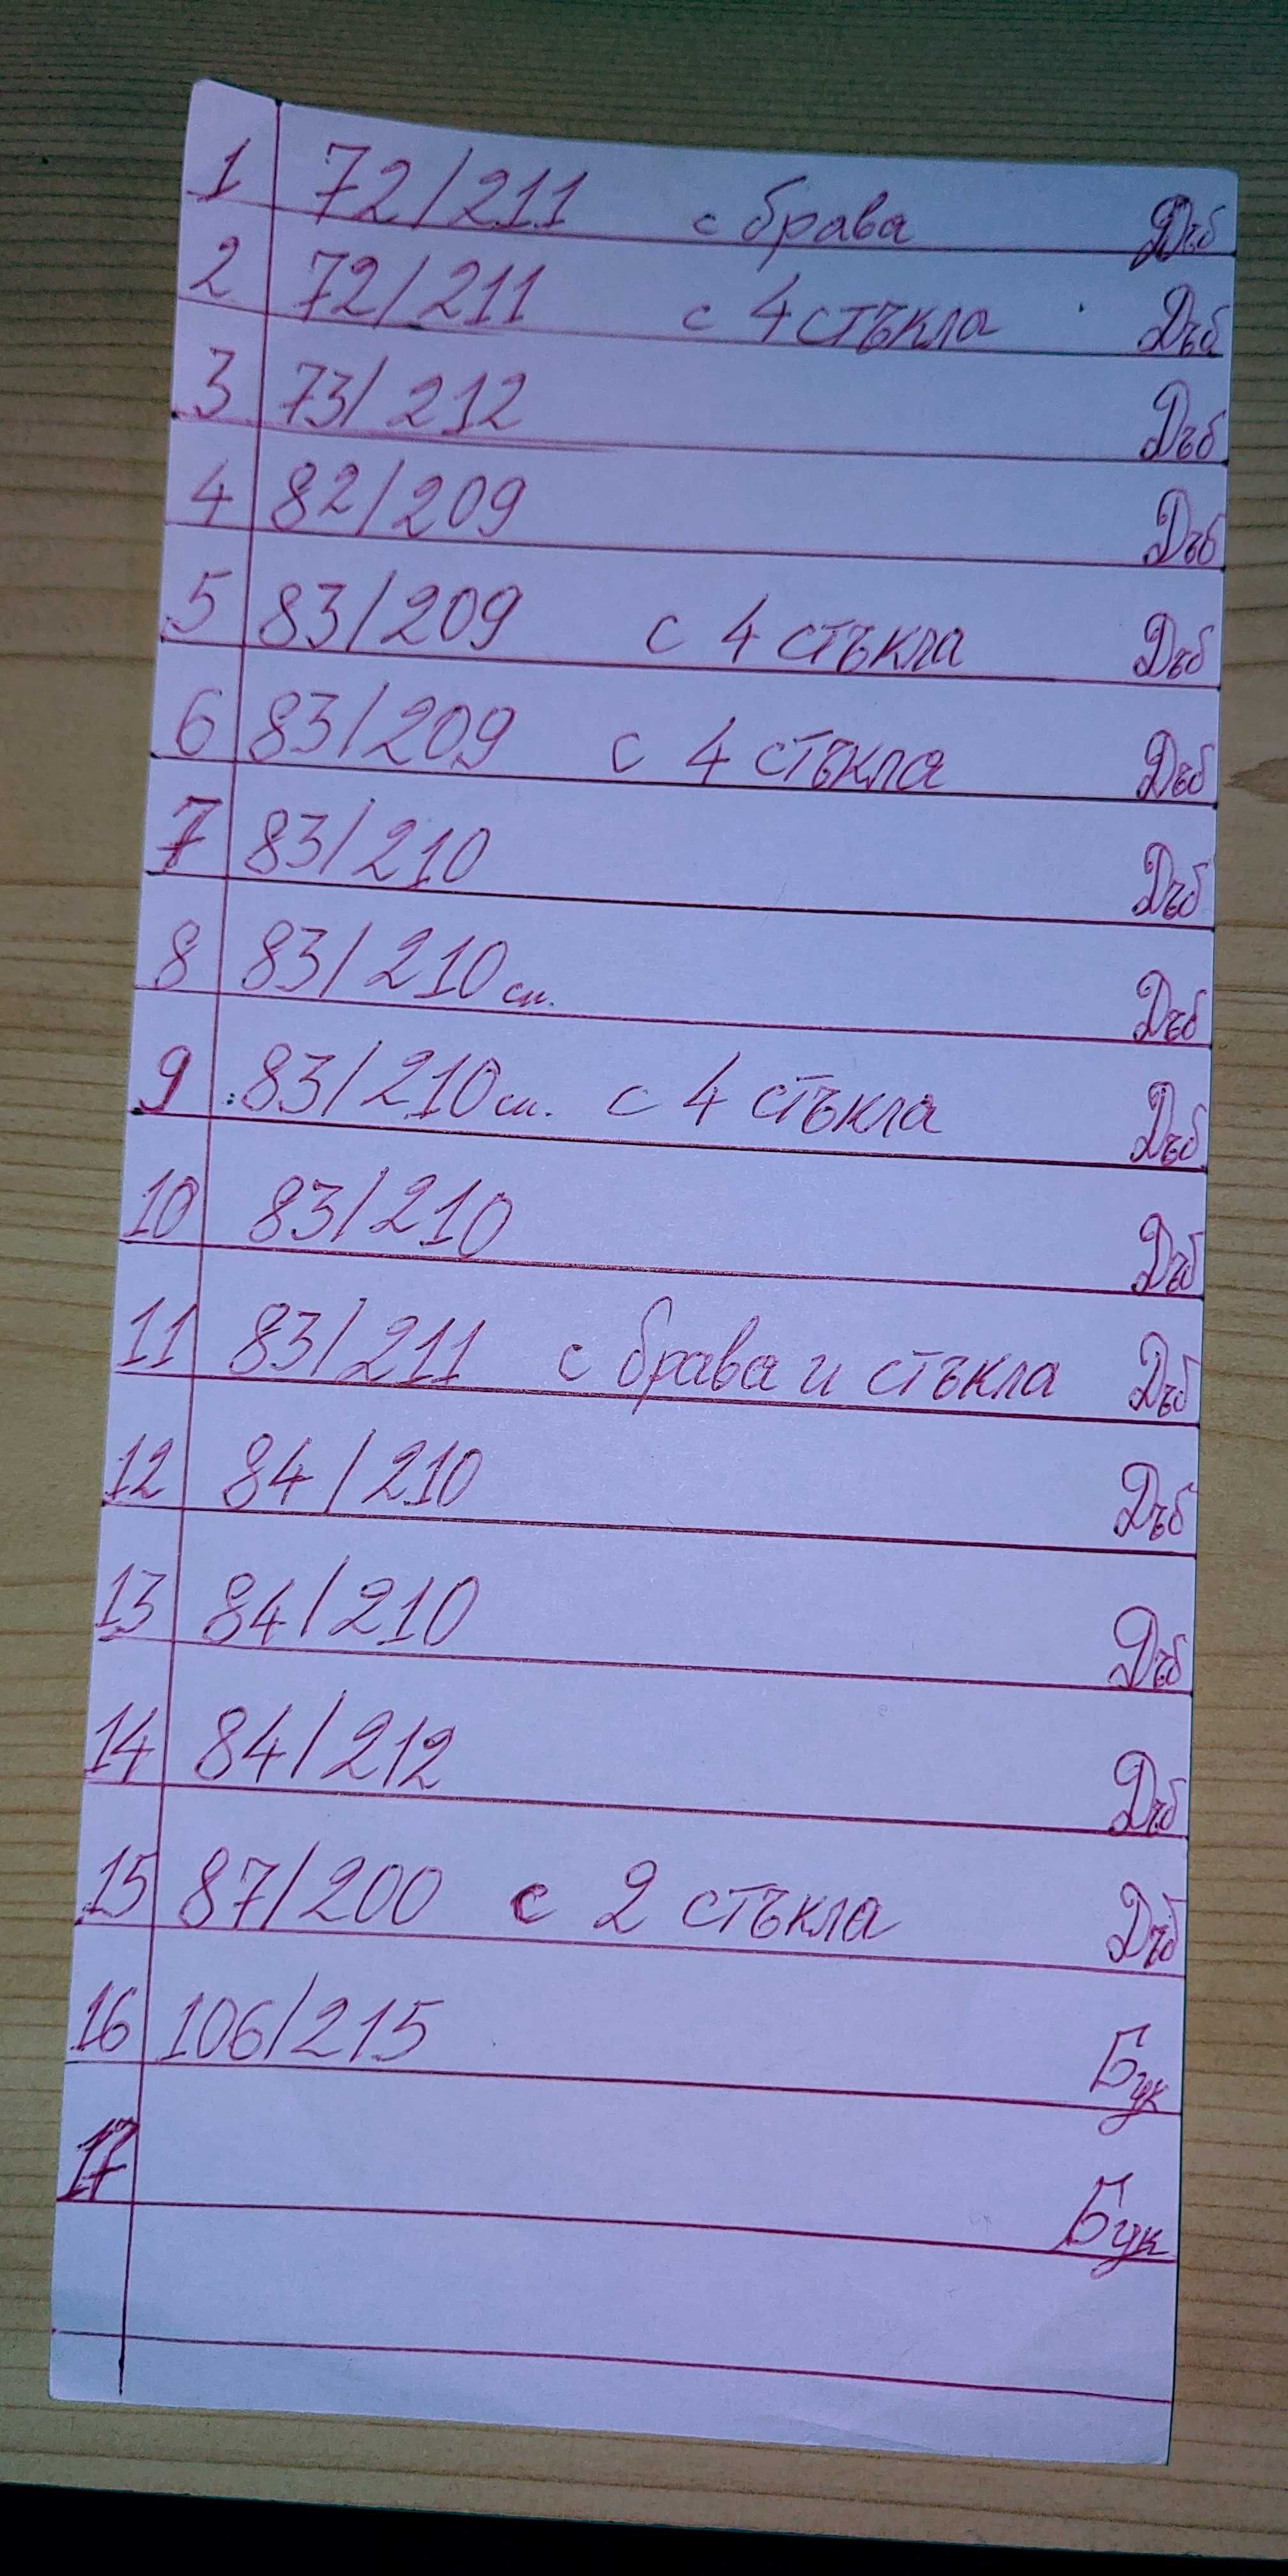 1 72/211 с брава Дъб
2 72/211 с 4 стъкла Дъб
3 73/212 Дъб
4 82/209 Дъб
5 83/209 с 4 стъкла Дъб
6 83/209 с 4 стъкла Дъб
7 83/210 Дъб
8 83/210 см. Дъб
9 83/210 см. с 4 стъкла Дъб
10 83/210 Дъб
11 83/211 с брава и стъкла Дъб
12 84/210 Дъб
13 84/210 Дъб
14 84/212 Дъб
15 87/200 с 2 стъкла Дъб
16 106/215 Бук
17 Бук